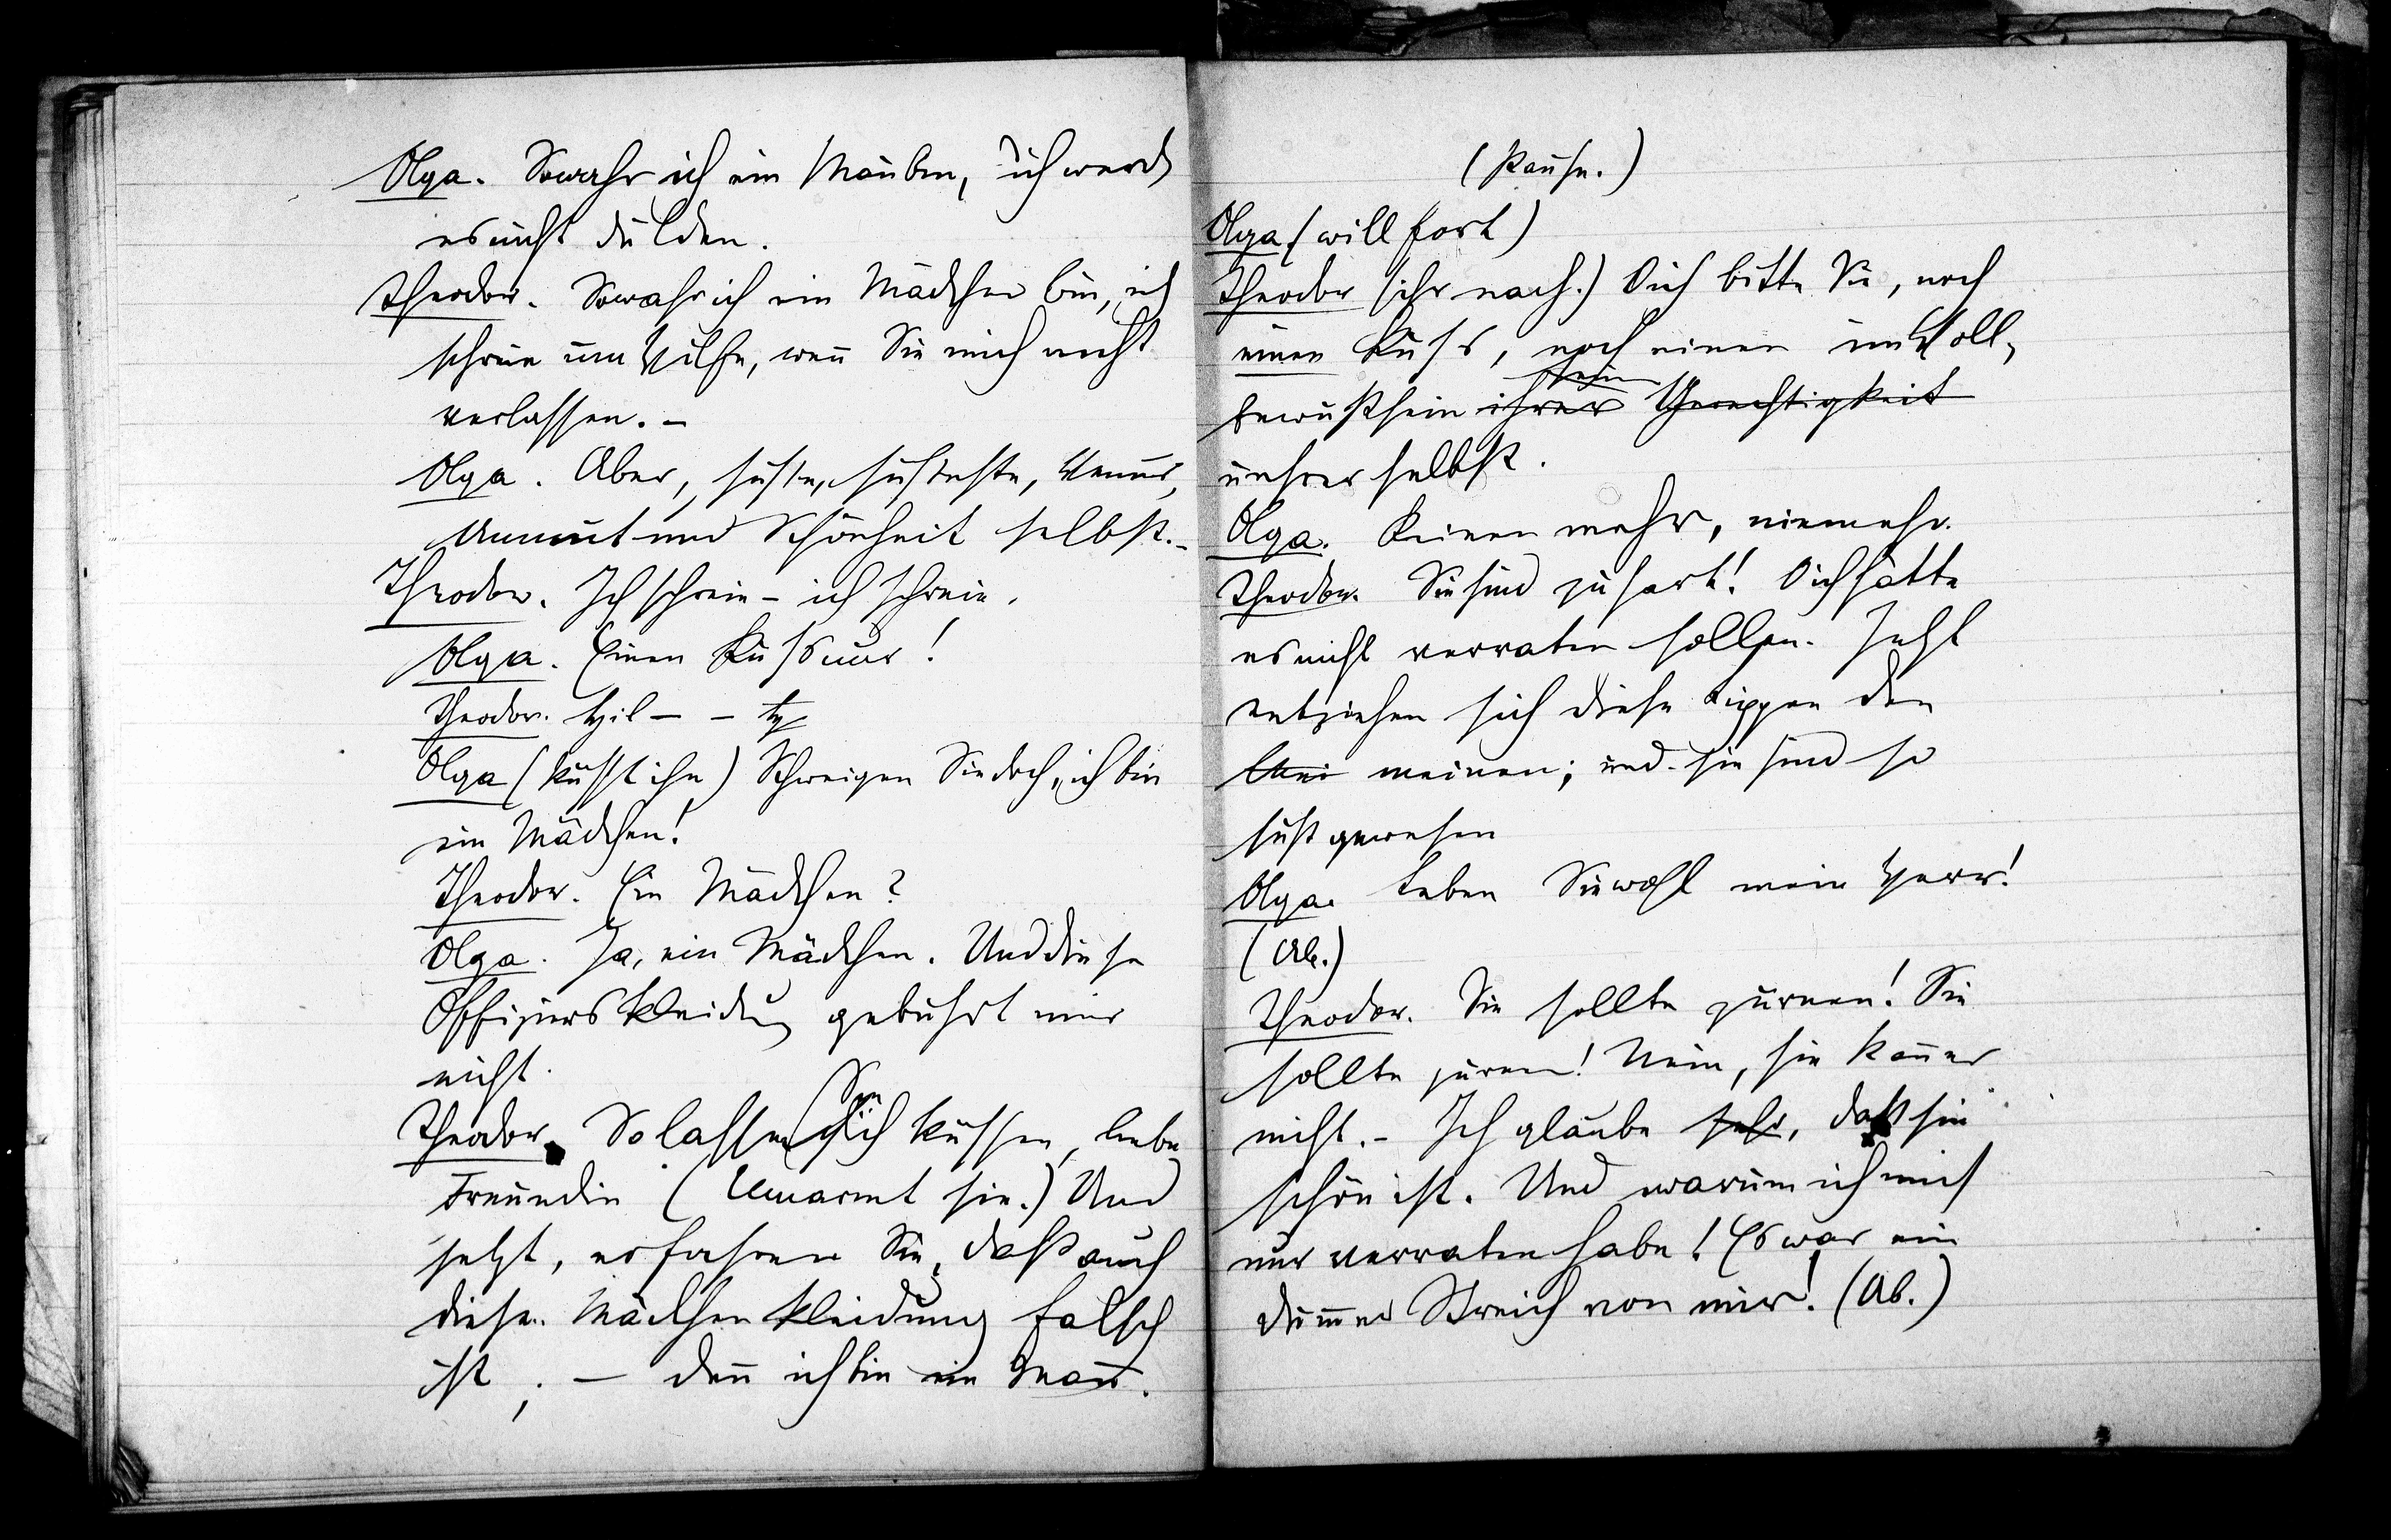 Olga. Sowahr ich ein Mann bin, ich werde
es nicht dulden.
Theodor. Sowahr ich ein Mädchen bin, ich
schreie um Hülfe, wenn Sie mich nicht
verlassen. –
Olga. Aber, süße, süßeste, Venus,
Anmut und Schönheit selbst. –
Theodor. Ich schreie – ich schreie.
Olga. Einen Kuß nur!
Theodor. Hil – –
Olga (küsst ihn) Schweigen Sie doch, ich bin
ein Mädchen!
Theodor. Ein Mädchen?
Olga. Ja, ein Mädchen. Und diese
Offizierskleidung gebührt mir
nicht.
Sie
Theodor. So lassen sich küssen, liebe
Freundin (Umarmt sie.) Und
jetzt, erfahren Sie, daß auch
diese Mädchenkleidung falsch
ist; – denn ich bin ein Mann.
(Pause.)
Olga (will fort)
Theodor (ihr nach.) O ich bitte Sie, noch
einen Kuss, noch einen im Voll-
bewußtsein ihrer Gerechtigkeit
unsrer selbst.
Olga. Keinen mehr, niemehr.
Theodor. Sie sind zu hart! O ich hätte
es nicht verraten sollen. Jetzt
entziehen sich diese Lippen den
meinen; und sie sind so
süß gewesen
Olga. Leben Sie wohl mein Herr!
(Ab.)
Theodor. Sie sollte zürnen! Sie
sollte zürnen! Nein, sie kann es
nicht. – Ich glaube sehr, daß sie
schön ist. Und warum ich mich
nur verraten habe! Es war ein
dummer Streich von mir! (Ab.)